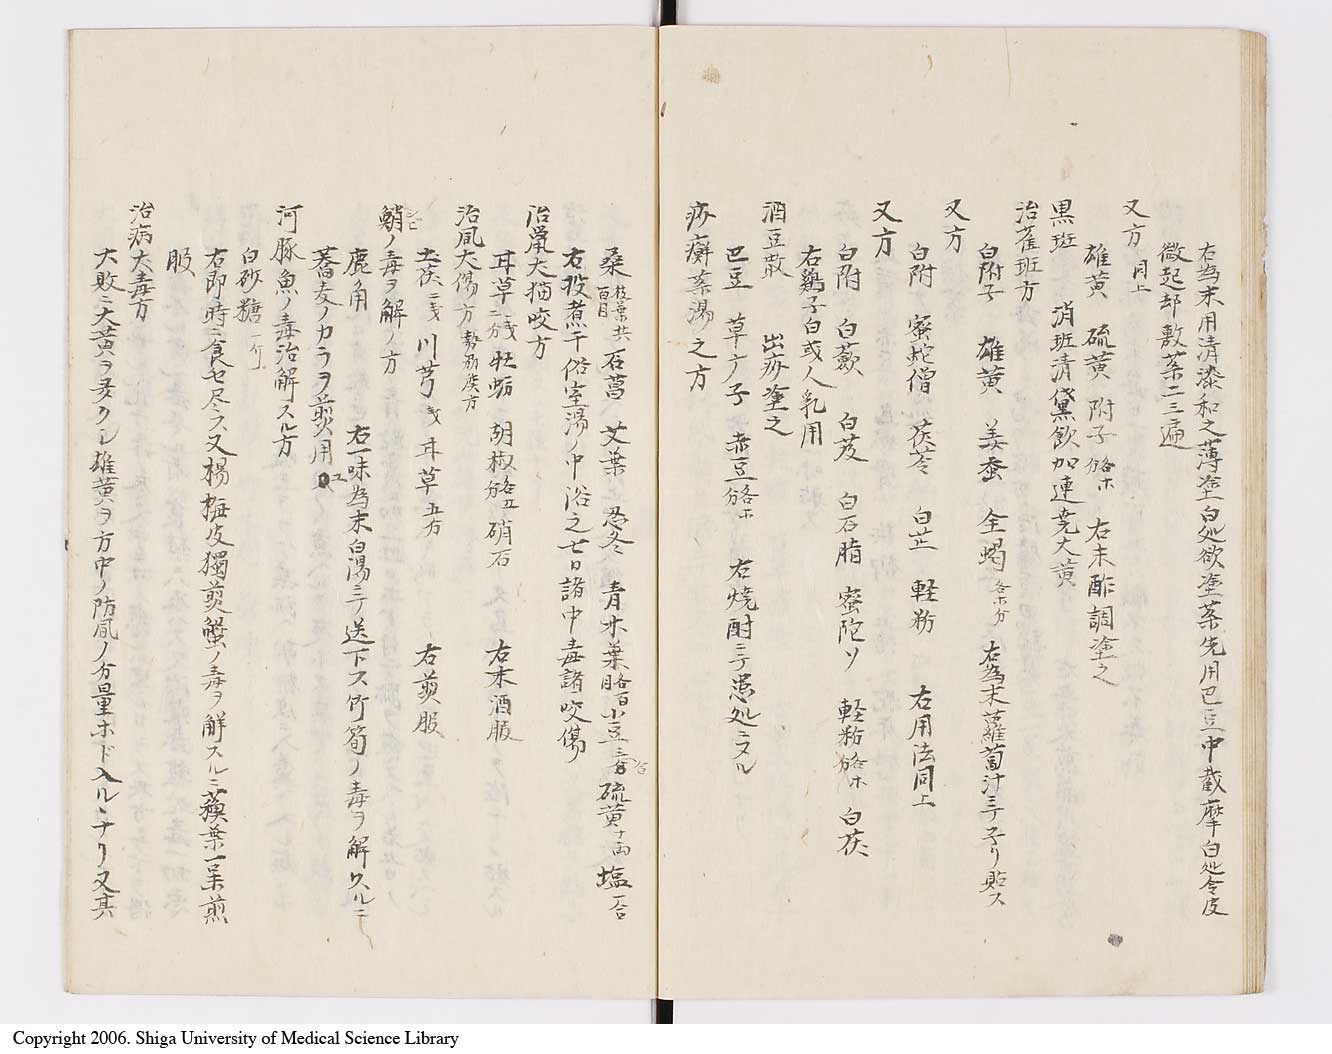 右為末用清漆和之薄塗白処欲塗薬先用巴豆中截摩白処令皮
微起却敷薬二三遍
又方 同上
雄黄 硫黄 附子 各等 右末酢調塗之
黒斑 消斑清黛飲加連尭大黄
治雀斑方
白附子 雄黄 姜蚕 全蝎 各等分 右為末蘿蔔汁ニテ子リ貼ス
又方
白附 蜜蛇僧 茯苓 白芷 軽粉 右用法同上
又方
白附 白蘞 白芨 白石脂 蜜陀ソ 軽粉 各等分 白茯
右鶏子白或人乳用
酒豆散 出疥塗之
巴豆 草ウ子 赤豆 各等分 右焼酎ニテ患処ニヌル
疥癬薬湯之方
桑 枝葉共百目 石菖 艾葉 忍冬 青木葉 各百目 小豆 三合 硫黄 十両 塩 一合
右投煮于俗室湯ノ中浴之七日諸中毒諸咬傷
治鼠犬猫咬方
耳草 牡蛎 胡椒 各五分 硝石 右末酒服
治風犬傷方
土茯 二戔 川芎 戔 耳草 五分 右煎服
鯖ノ毒ヲ解ノ方
鹿角 右一味為末白湯ニテ送下ス竹筍ノ毒ヲ解スルニ
蕎麦ノカラヲ煎用ユ
河豚魚ノ毒治解スル方
白砂糖 一斤
右即時ニ食セ尽ス又楊梅皮獨煎蟹ノ毒ヲ解スルニ蘓葉一味煎
服
治病犬毒方
大敗ニ大黄ヲ多クシ雄黄ヲ方中ノ防風ノ分量ホド入ルニナリ又其
Copyright 2006. Shiga University of Medical Science Library